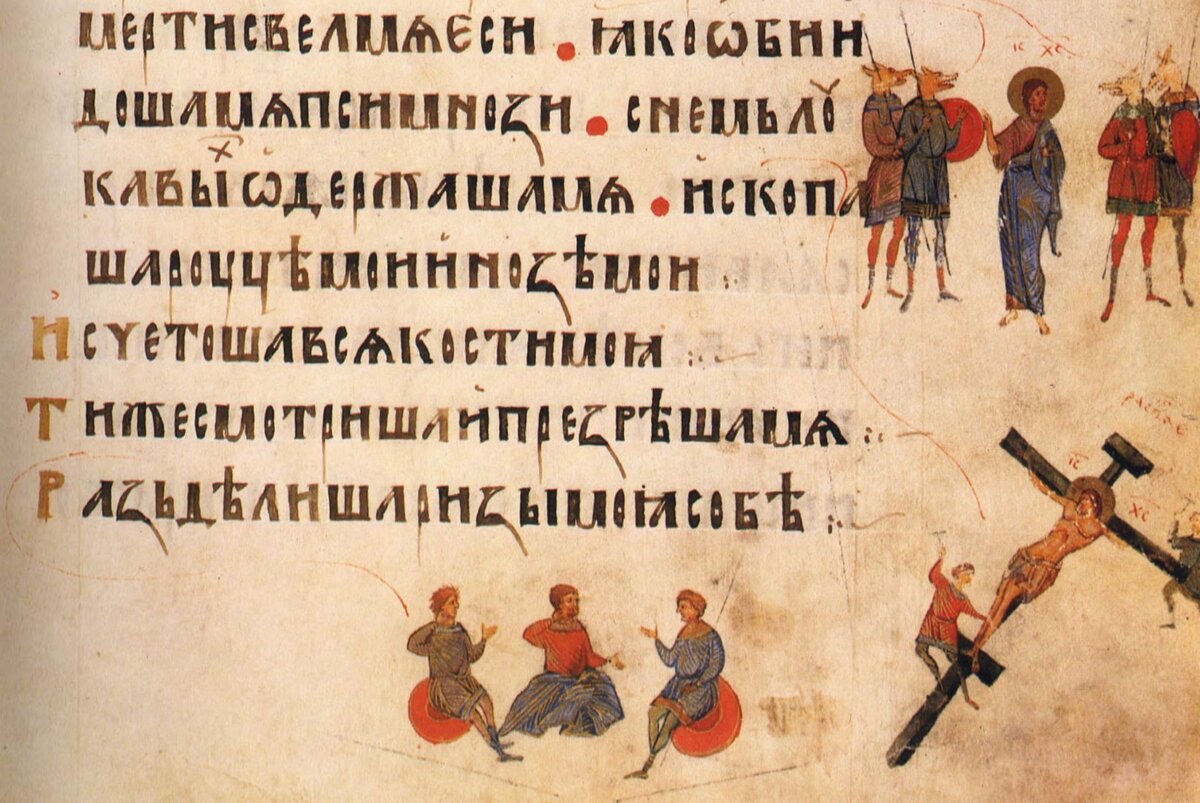 мертисвелмѧѥси · ꙗкоѡбии
дошамѧпсимнози · снемълѡ
кавыⷯѡдержашамѧ · ископа
шароуцѣмоиинозѣмои
исчетошавсѧкостимоꙗ
тижесмотришаипрезрѣшамѧ
раздѣлишаризымоꙗсобѣ
іс хс
распѧ
іс хс